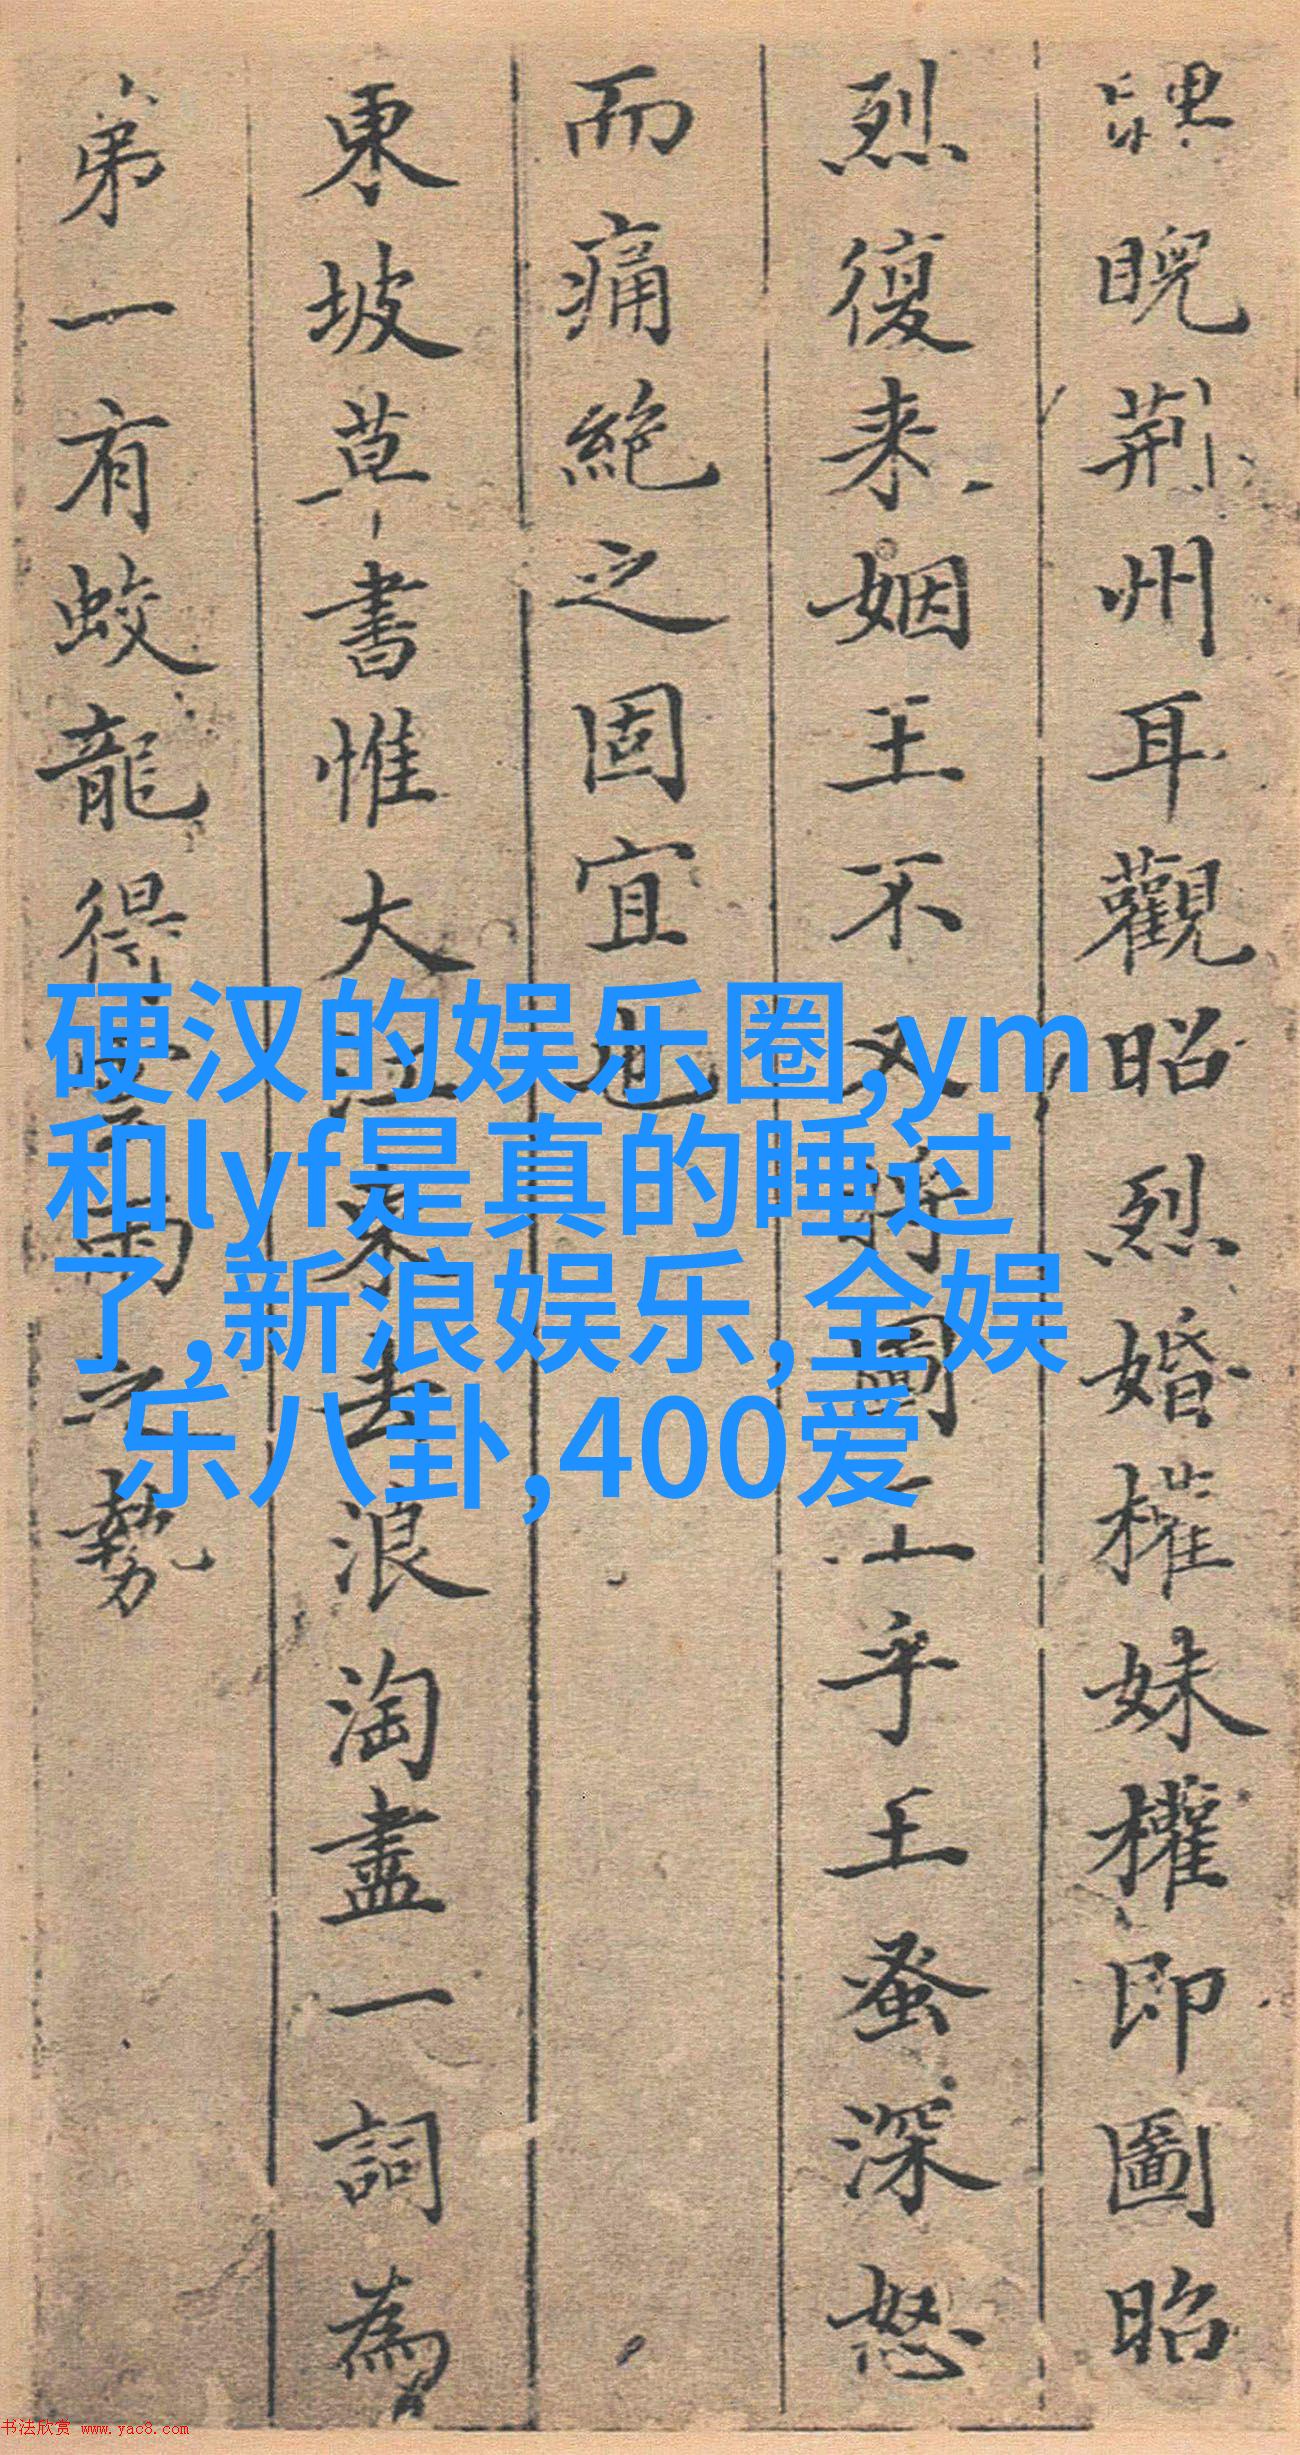 睨荆州耳觀昭烈婚權妹權即圖昭
烈復来姻王不又圖工乎王蚤深怒
而痛絶之固宜也
東坡草書惟大江東去浪淘盡一詞為
弟一有蛟龍得雲雨之勢
硬汉的娱乐圈,ym
和lyf是真的睡过
了,新浪娱乐,全娱
乐八卦,400爱
书法欣赏 www.yac8.com